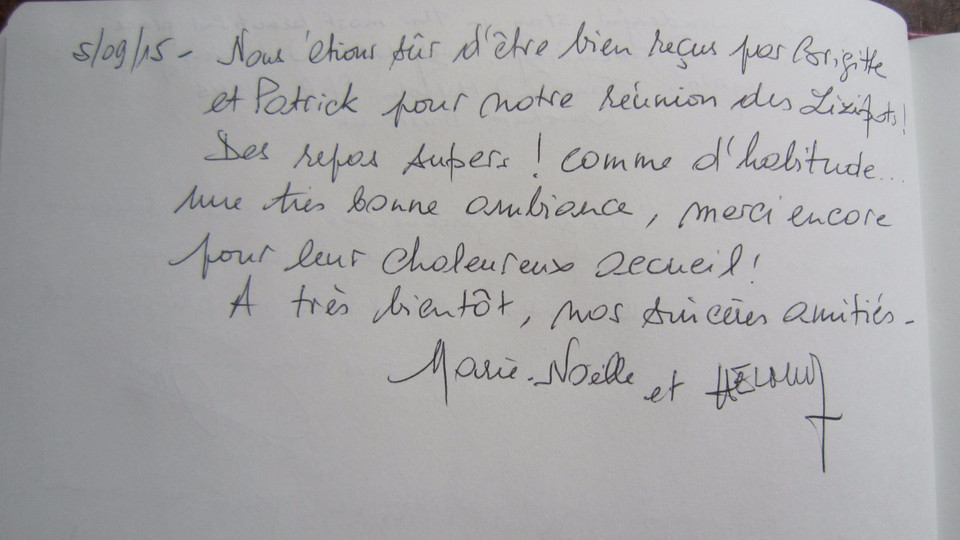 5/09/15 - Nous étions sûr d'être bien reçus par Brigitte
et Patrick pour notre réunion des
Des repas supers ! comme d'habitude...
une très bonne ambiance, merci encore
pour leur chaleureux accueil !
A très bientôt, nos sincères amitiés -
Marie-Noëlle et